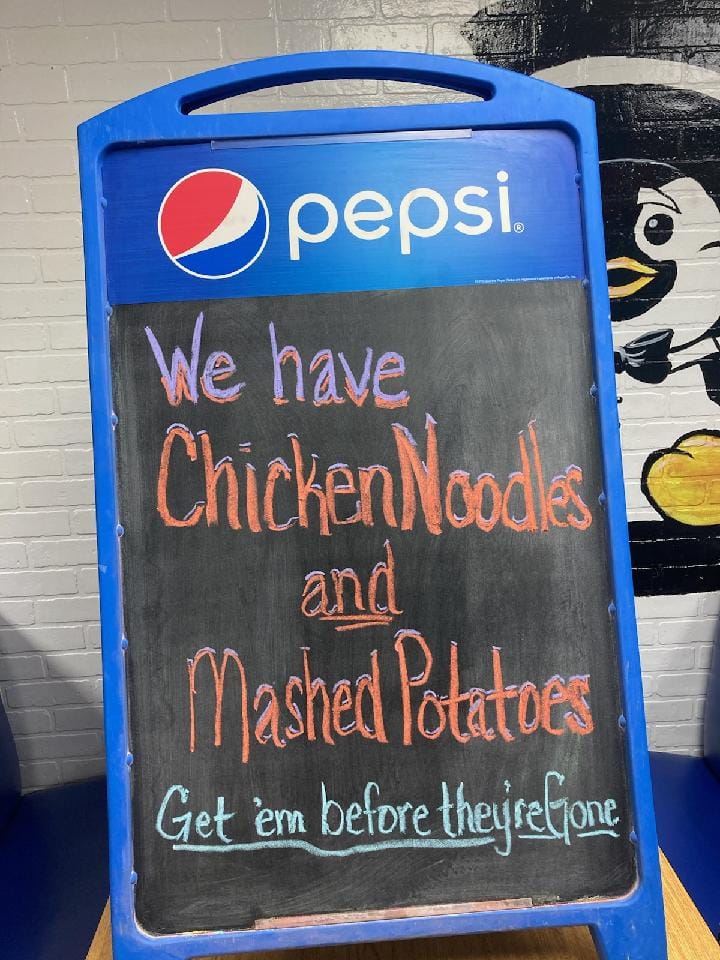 pepsi®
We have
Chicken Noodles
and
Mashed Potatoes
Get 'em before they're Gone